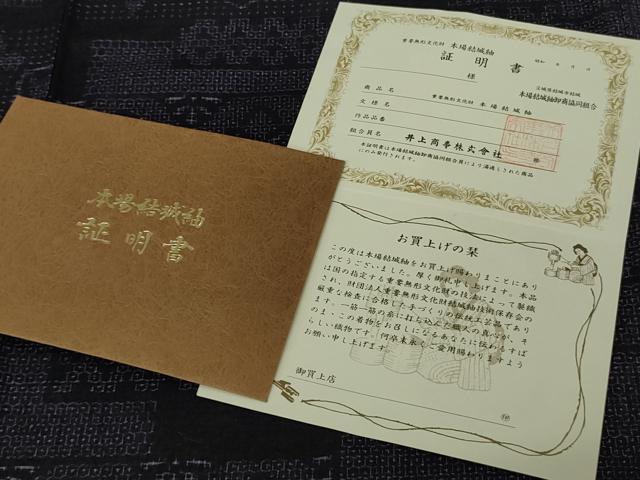 本場結城紬
証明書
重要無形文化財 本場結城紬
証明書
昭和 年 月 日
様
茨城県結城市結城
本場結城紬卸商協同組合
商品名 重要無形文化財 本場結城紬
文様名
作品品番
組合員名 井上商事株式會社
本証明書は本場結城紬卸商協同組合員により渡されした商品
にのみ発行されます。
お買上げの栞
この度は本場結城紬をお買上げ賜わりまことにあり
がとうございました。厚く御礼申し上げます。本品
は国の指定する重要無形文化財の技法によって製織
され、財団法人重要無形文化財結城紬技術保存会の
厳重な検査に合格した手づくりの伝統工芸品であり
ます。一筋一筋の糸に打ち込んだ職人の真心が、そ
のまゝこの着物をお召しになるあなたに伝わるすば
らしい織物です。何卒末永くご愛用賜わりますよう
お願い申し上げます。
御買上店
㊞